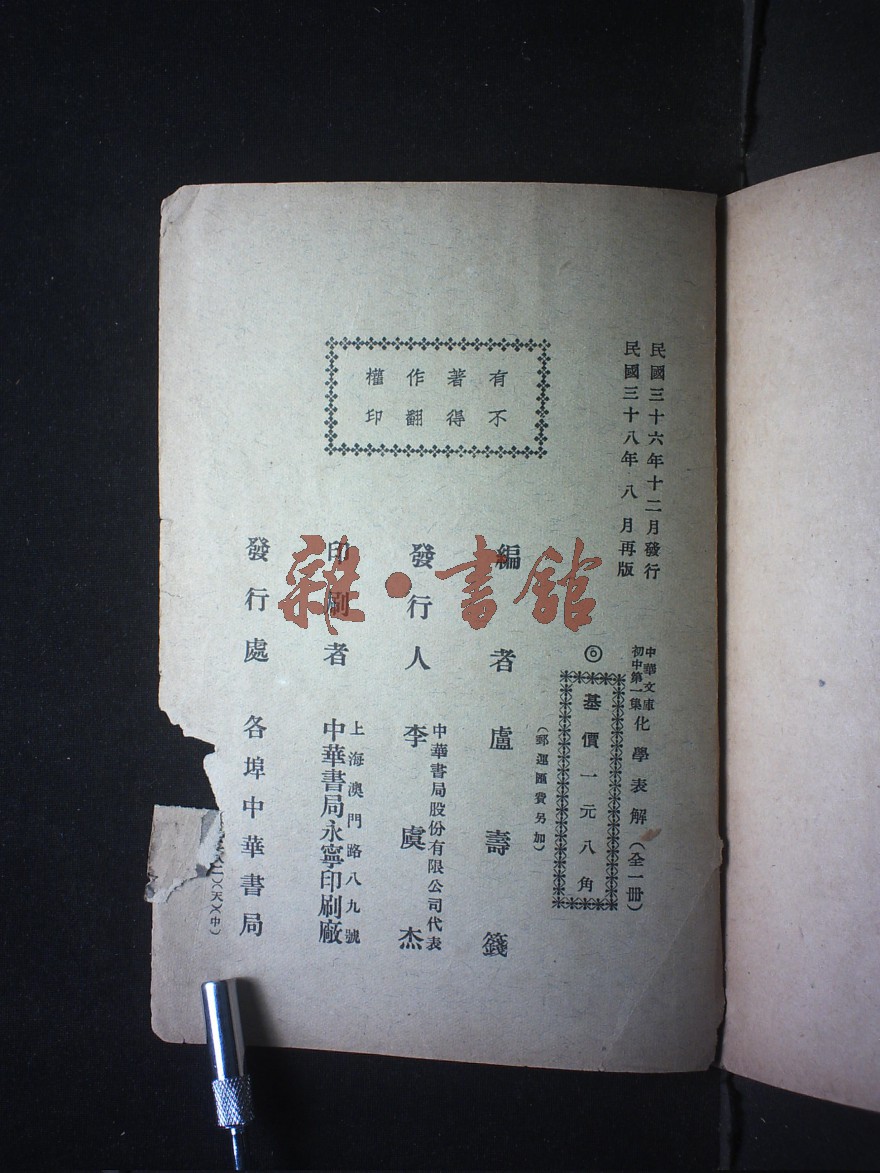 民國三十六年十二月發行
民國三十八年八月再版
中華文庫
初中第一集
化學表解(全一冊)
◎基價一元八角
(郵運匯費另加)
有著作權
不得翻印
編者 盧壽籛
發行人 李虞杰
中華書局股份有限公司代表
印刷者 中華書局永寧印刷廠
上海澳門路八九號
發行處 各埠中華書局
(天)(中)
雜·書館